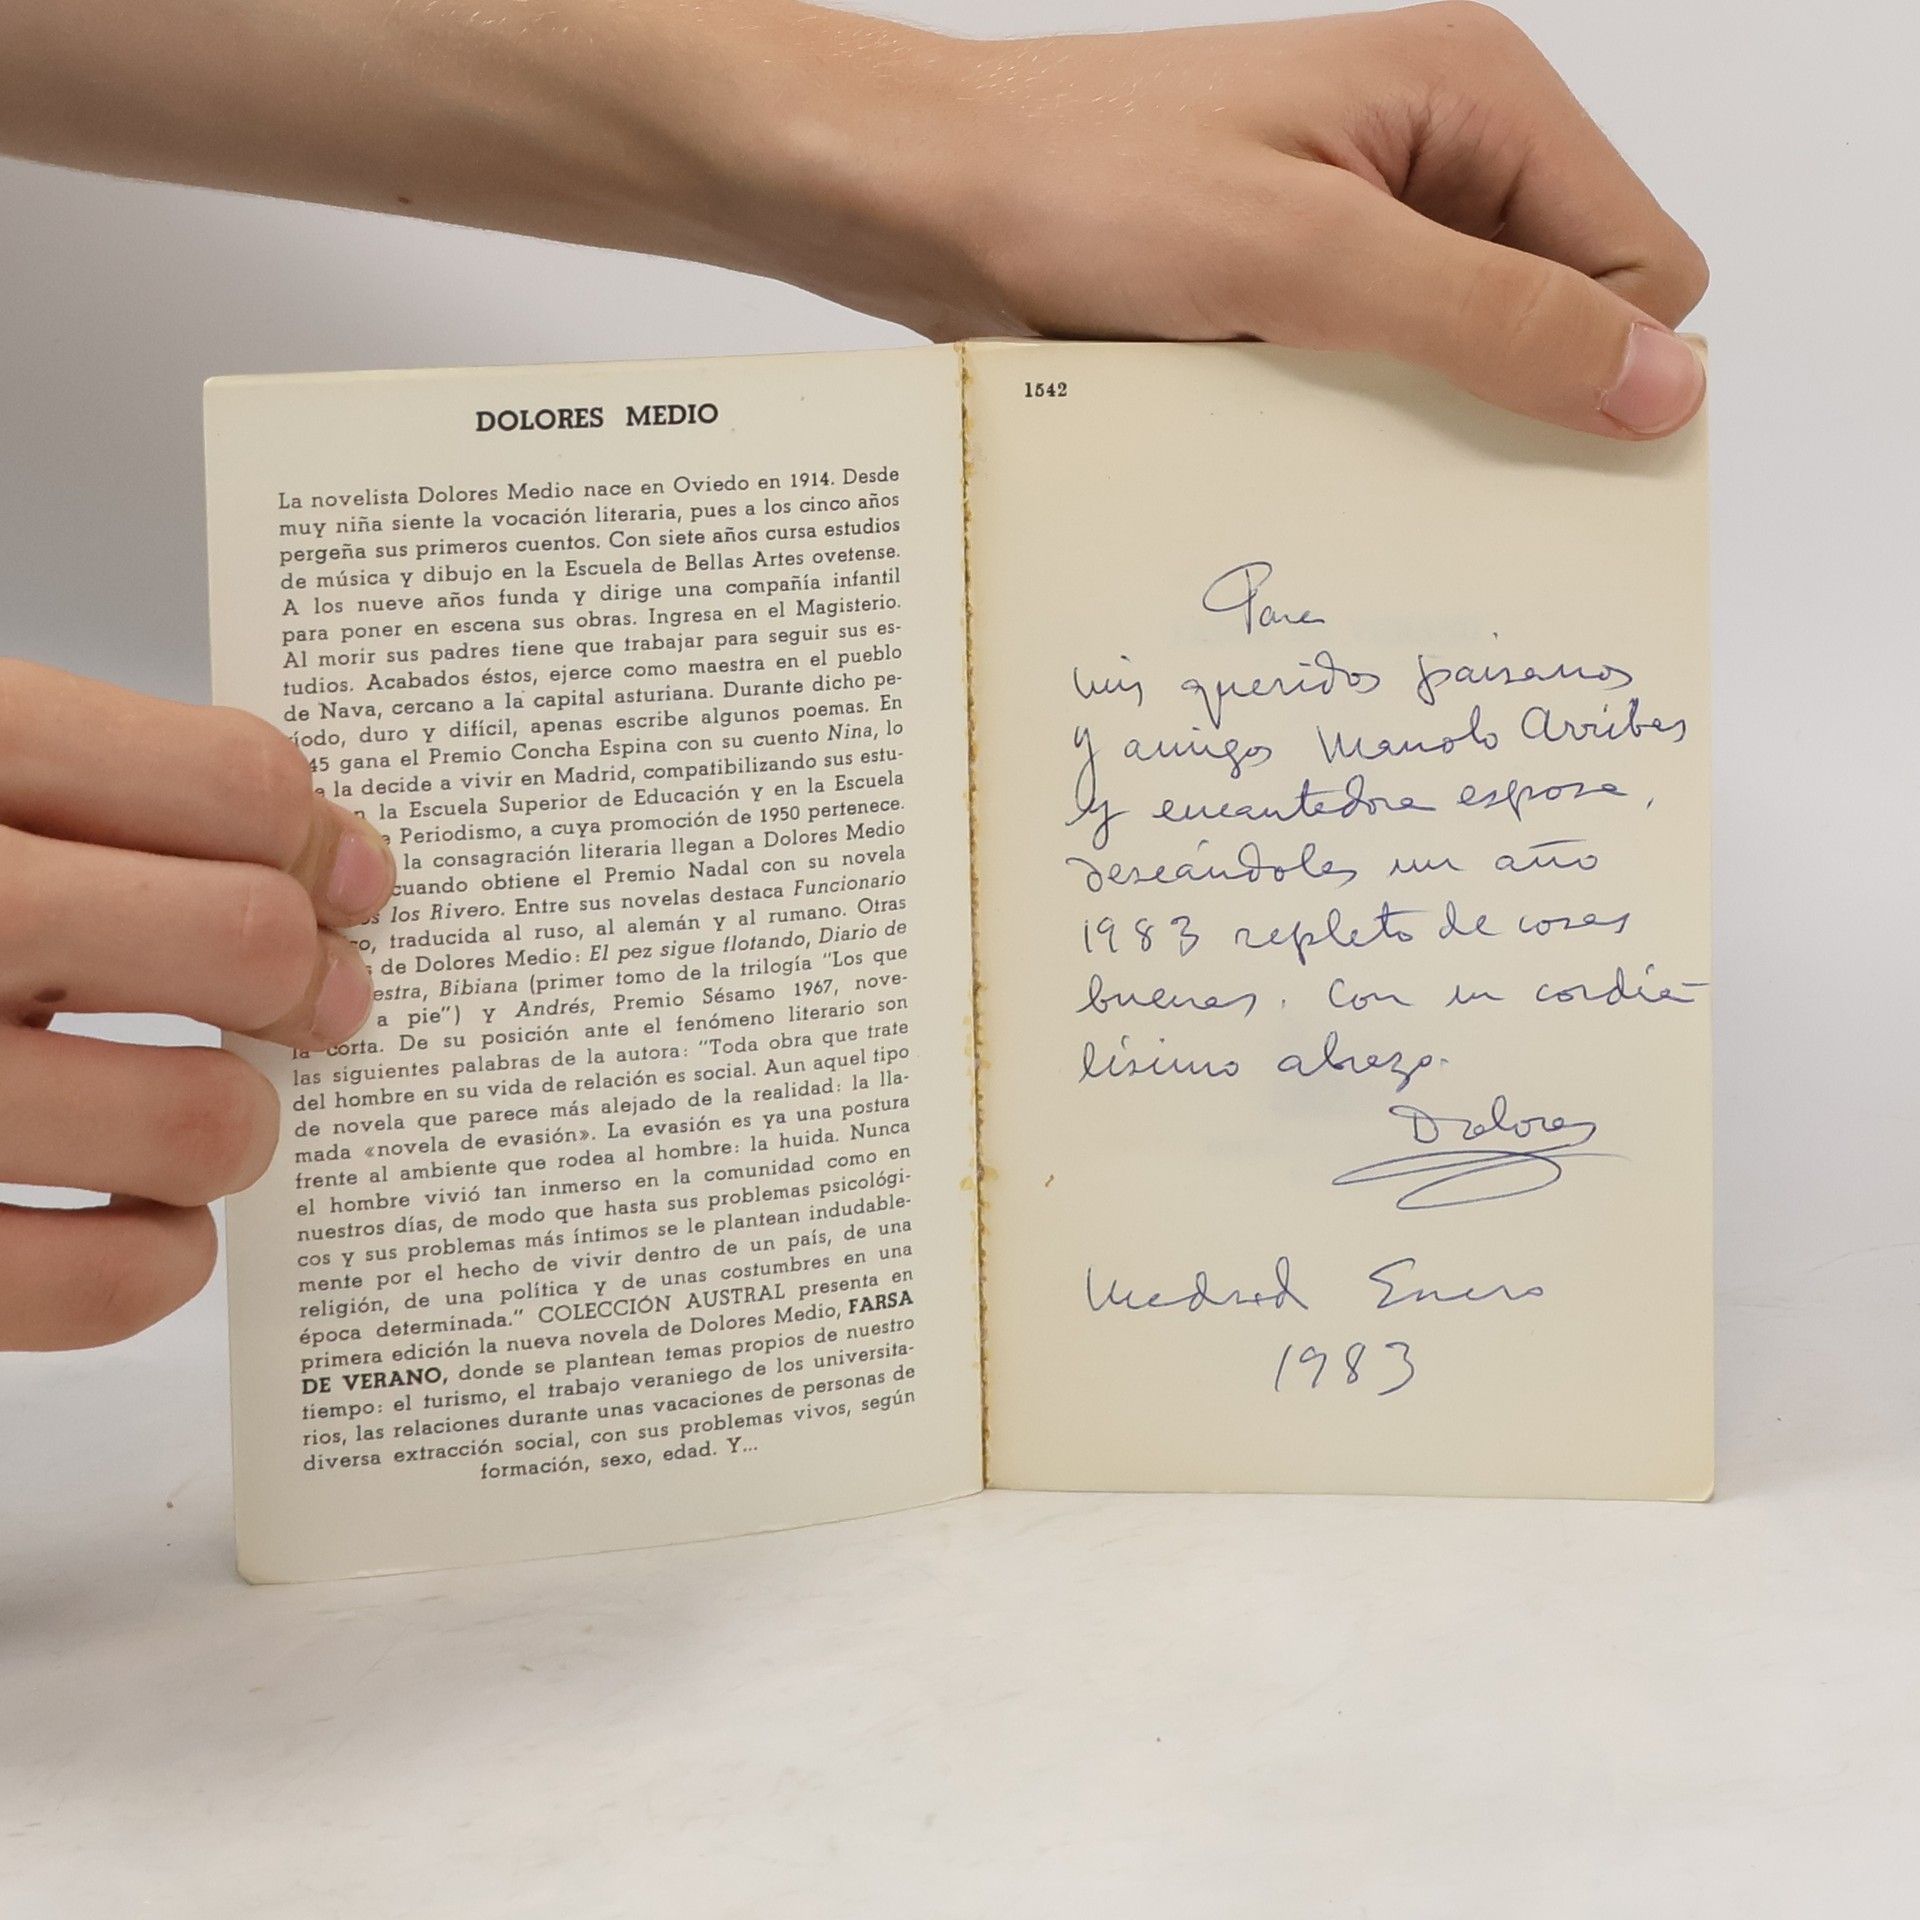 DOLORES MEDIO
La novelista Dolores Medio nace en Oviedo en 1914. Desde
muy niña siente la vocación literaria, pues a los cinco años
pergeña sus primeros cuentos. Con siete años cursa estudios
de música y dibujo en la Escuela de Bellas Artes ovetense.
A los nueve años funda y dirige una compañía infantil
para poner en escena sus obras. Ingresa en el Magisterio.
Al morir sus padres tiene que trabajar para seguir sus es-
tudios. Acabados éstos, ejerce como maestra en el pueblo
de Nava, cercano a la capital asturiana. Durante dicho pe-
ríodo, duro y difícil, apenas escribe algunos poemas. En
45 gana el Premio Concha Espina con su cuento Nina, lo
la decide a vivir en Madrid, compatibilizando sus estu-
la Escuela Superior de Educación y en la Escuela
Periodismo, a cuya promoción de 1950 pertenece.
la consagración literaria llegan a Dolores Medio
cuando obtiene el Premio Nadal con su novela
los Rivero. Entre sus novelas destaca Funcionario
traducida al ruso, al alemán y al rumano. Otras
de Dolores Medio: El pez sigue flotando, Diario de
estra, Bibiana (primer tomo de la trilogía "Los que
a pie") y Andrés, Premio Sésamo 1967, nove-
la corta. De su posición ante el fenómeno literario son
las siguientes palabras de la autora: "Toda obra que trate
del hombre en su vida de relación es social. Aun aquel tipo
de novela que parece más alejado de la realidad: la lla-
mada «novela de evasión». La evasión es ya una postura
frente al ambiente que rodea al hombre: la huida. Nunca
el hombre vivió tan inmerso en la comunidad como en
nuestros días, de modo que hasta sus problemas psicológi-
cos y sus problemas más íntimos se le plantean indudable-
mente por el hecho de vivir dentro de un país, de una
religión, de una política y de unas costumbres en una
época determinada." COLECCIÓN AUSTRAL presenta en
primera edición la nueva novela de Dolores Medio, FARSA
DE VERANO, donde se plantean temas propios de nuestro
tiempo: el turismo, el trabajo veraniego de los universita-
rios, las relaciones durante unas vacaciones de personas de
diversa extracción social, con sus problemas vivos, según
formación, sexo, edad. Y...
1542
Para
mis queridos paisanos
y amigos Manolo Arribas
y encantadora esposa,
deseándoles un año
1983 repleto de cosas
buenas. Con un cordia-
lísimo abrazo.
Dolores
Madrid Enero
1983